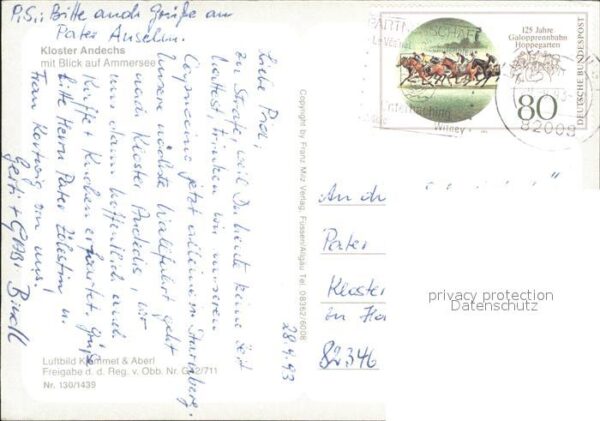 P.S: Bitte auch Grüße an
Pater Anselm.
Kloster Andechs
mit Blick auf Ammersee
Liebe
zur Strafe, weil Du heute keine Zeit
hattest, trinken wir unseren
Capuccino jetzt alleine in Starnberg.
Unsere nächste Wallfahrt geht
nach Kloster Andechs, wo
uns dann hoffentlich auch
Kaffee + Kuchen erwartet. Grüße
bitte Herrn Pater Zölestin u.
Frau Hartwig von uns!
Gerti + GABI
28.4.93
Luftbild Klammet & Aberl
Freigabe d. d. Reg. v. Obb. Nr. G42/711
Nr. 130/1439
Copyright by Franz Milz Verlag, Füssen/Allgäu Tel. 08362/6008
125 Jahre
Galopprennbahn
Hoppegarten
80
DEUTSCHE BUNDESPOST
PARTNERSCHAFT
Le Vésinet
Esternaching
Witney
82009
An d
Pater
Kloster
82346
privacy protection
Datenschutz